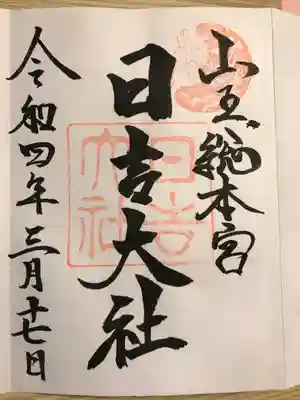 山王総本宮
日吉大社
令和四年三月十七日
日吉大社